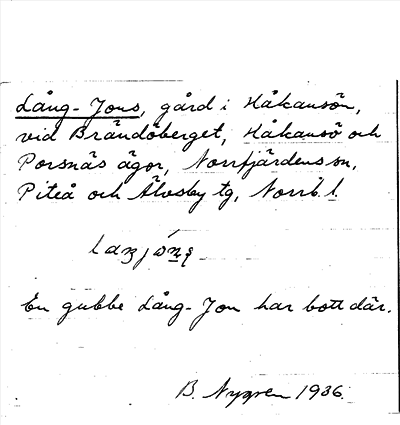 Lång-Jons, gård i Håkansön,
vid Brändöberget, Håkansö och
Porsnäs ägor, Norrfjärdens sn,
Piteå och Älvsby tg, Norrb. l.
En gubbe Lång-Jon har bott där.
B. Nygren 1936.